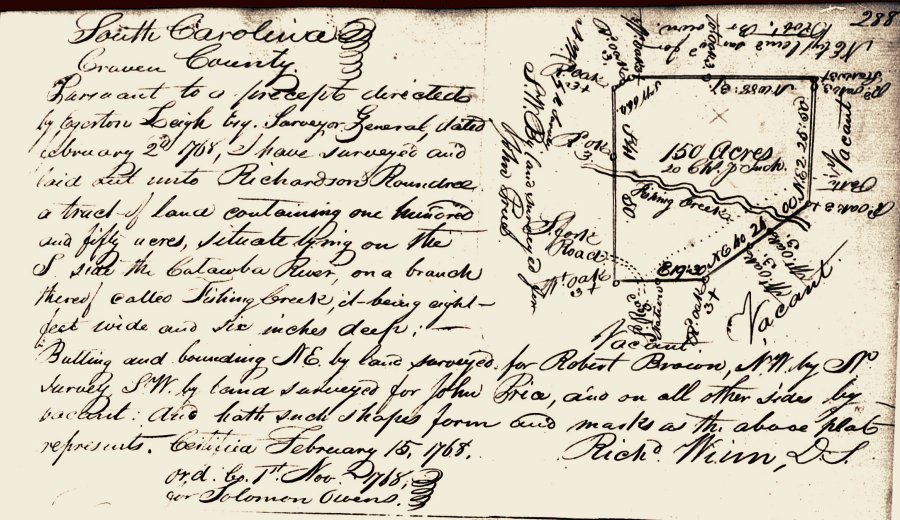 South Carolina
Craven County
Pursuant to a precept directed
by Egerton Leigh Esq. Surveyor General, dated
February 2d 1768, I have surveyed and
laid out unto Richardson Roundree
a tract of land containing one hundred
and fifty acres, situate lying on the
S. side the Catawba River, on a branch
thereof called Fishing Creek, it being eight
feet wide and six inches deep; —
Butting and bounding N.E. by land surveyed for Robert Brown, N.W. by No
survey S.W. by land surveyed for John Price, and on all other sides by
vacant: And hath such shapes form and marks as the above plat
represents. Certified February 15, 1768.
Richd. Winn, D.S.
ord. Co. 1st Nov. 1768,
for Solomon Owens.
150 Acres
20 Ch. p Inch.
Fishing Creek
S. fork
Road
W. Oak
3+
Vacant
Vacant
Vacant
S.W. By land surveyed for
John Price
N.E. by land surv'd for
Robt. Brown